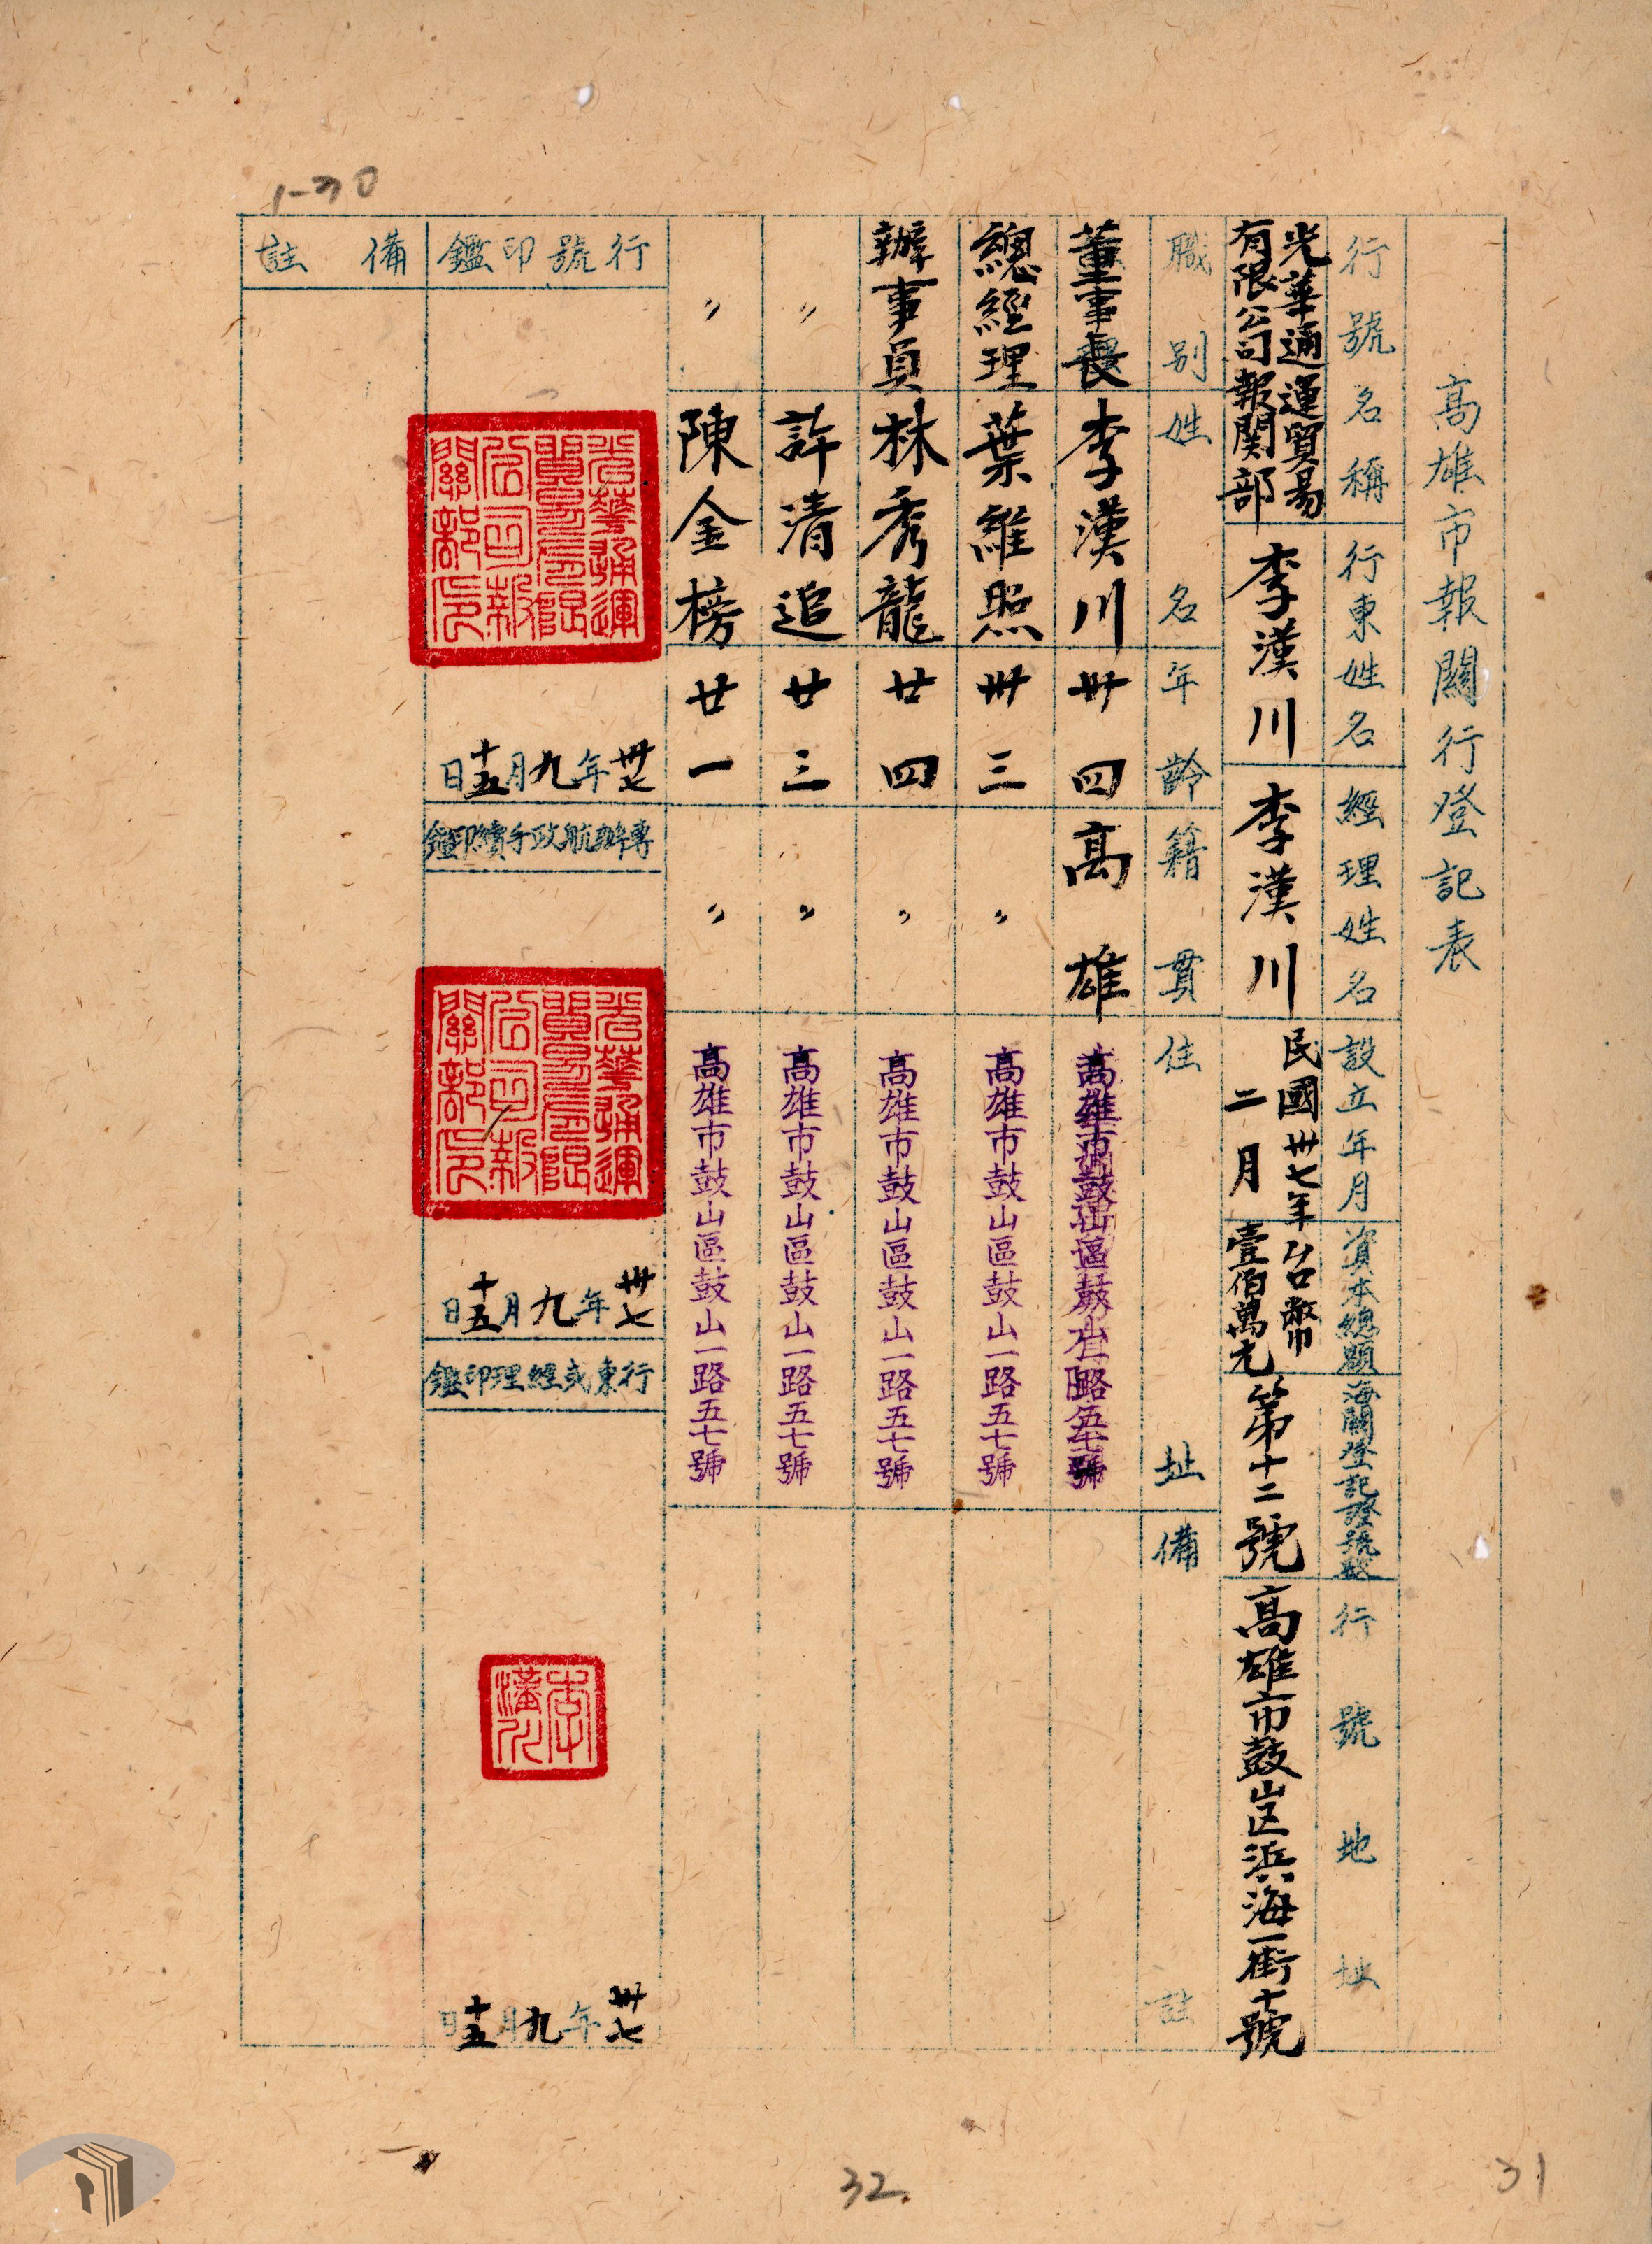 高雄市報關行登記表
行號名稱
光華通運貿易
有限公司報関部
行東姓名
李漢川
經理姓名
李漢川
設立年月
民國卅七年
二月
資本總額
台幣
壹佰萬元
海關登記證號數
第十二號
行號地址
高雄市鼓山区浜海一街十號
職別
姓名
年齡
籍貫
住址
備註
董事長
李漢川
卅四
高雄
總經理
葉維熙
卅三
〃
高雄市鼓山區鼓山一路五七號
辦事員
林秀龍
廿四
〃
高雄市鼓山區鼓山一路五七號
〃
許清追
廿三
〃
高雄市鼓山區鼓山一路五七號
〃
陳金榜
廿一
〃
高雄市鼓山區鼓山一路五七號
行號印鑑
光華通運
貿易有限
公司報
關部印
卅七年九月十五日
專辦航政手續印鑑
光華通運
貿易有限
公司報
關部印
卅七年九月十五日
行東或經理印鑑
李
漢川
卅七年九月十五日
備註
1-30
32
31